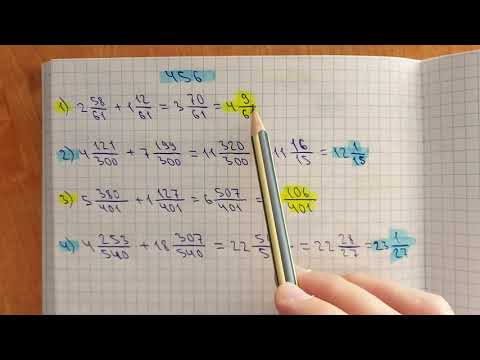 456
1) 2 58/61 + 1 12/61 = 3 70/61 = 4 9/6
2) 4 121/300 + 7 199/300 = 11 320/300 11 16/15 = 12 1/15
3) 5 380/401 + 1 127/401 = 6 507/401 = 106/401
4) 4 253/540 + 18 307/540 = 22 = 22 28/27 = 23 1/27